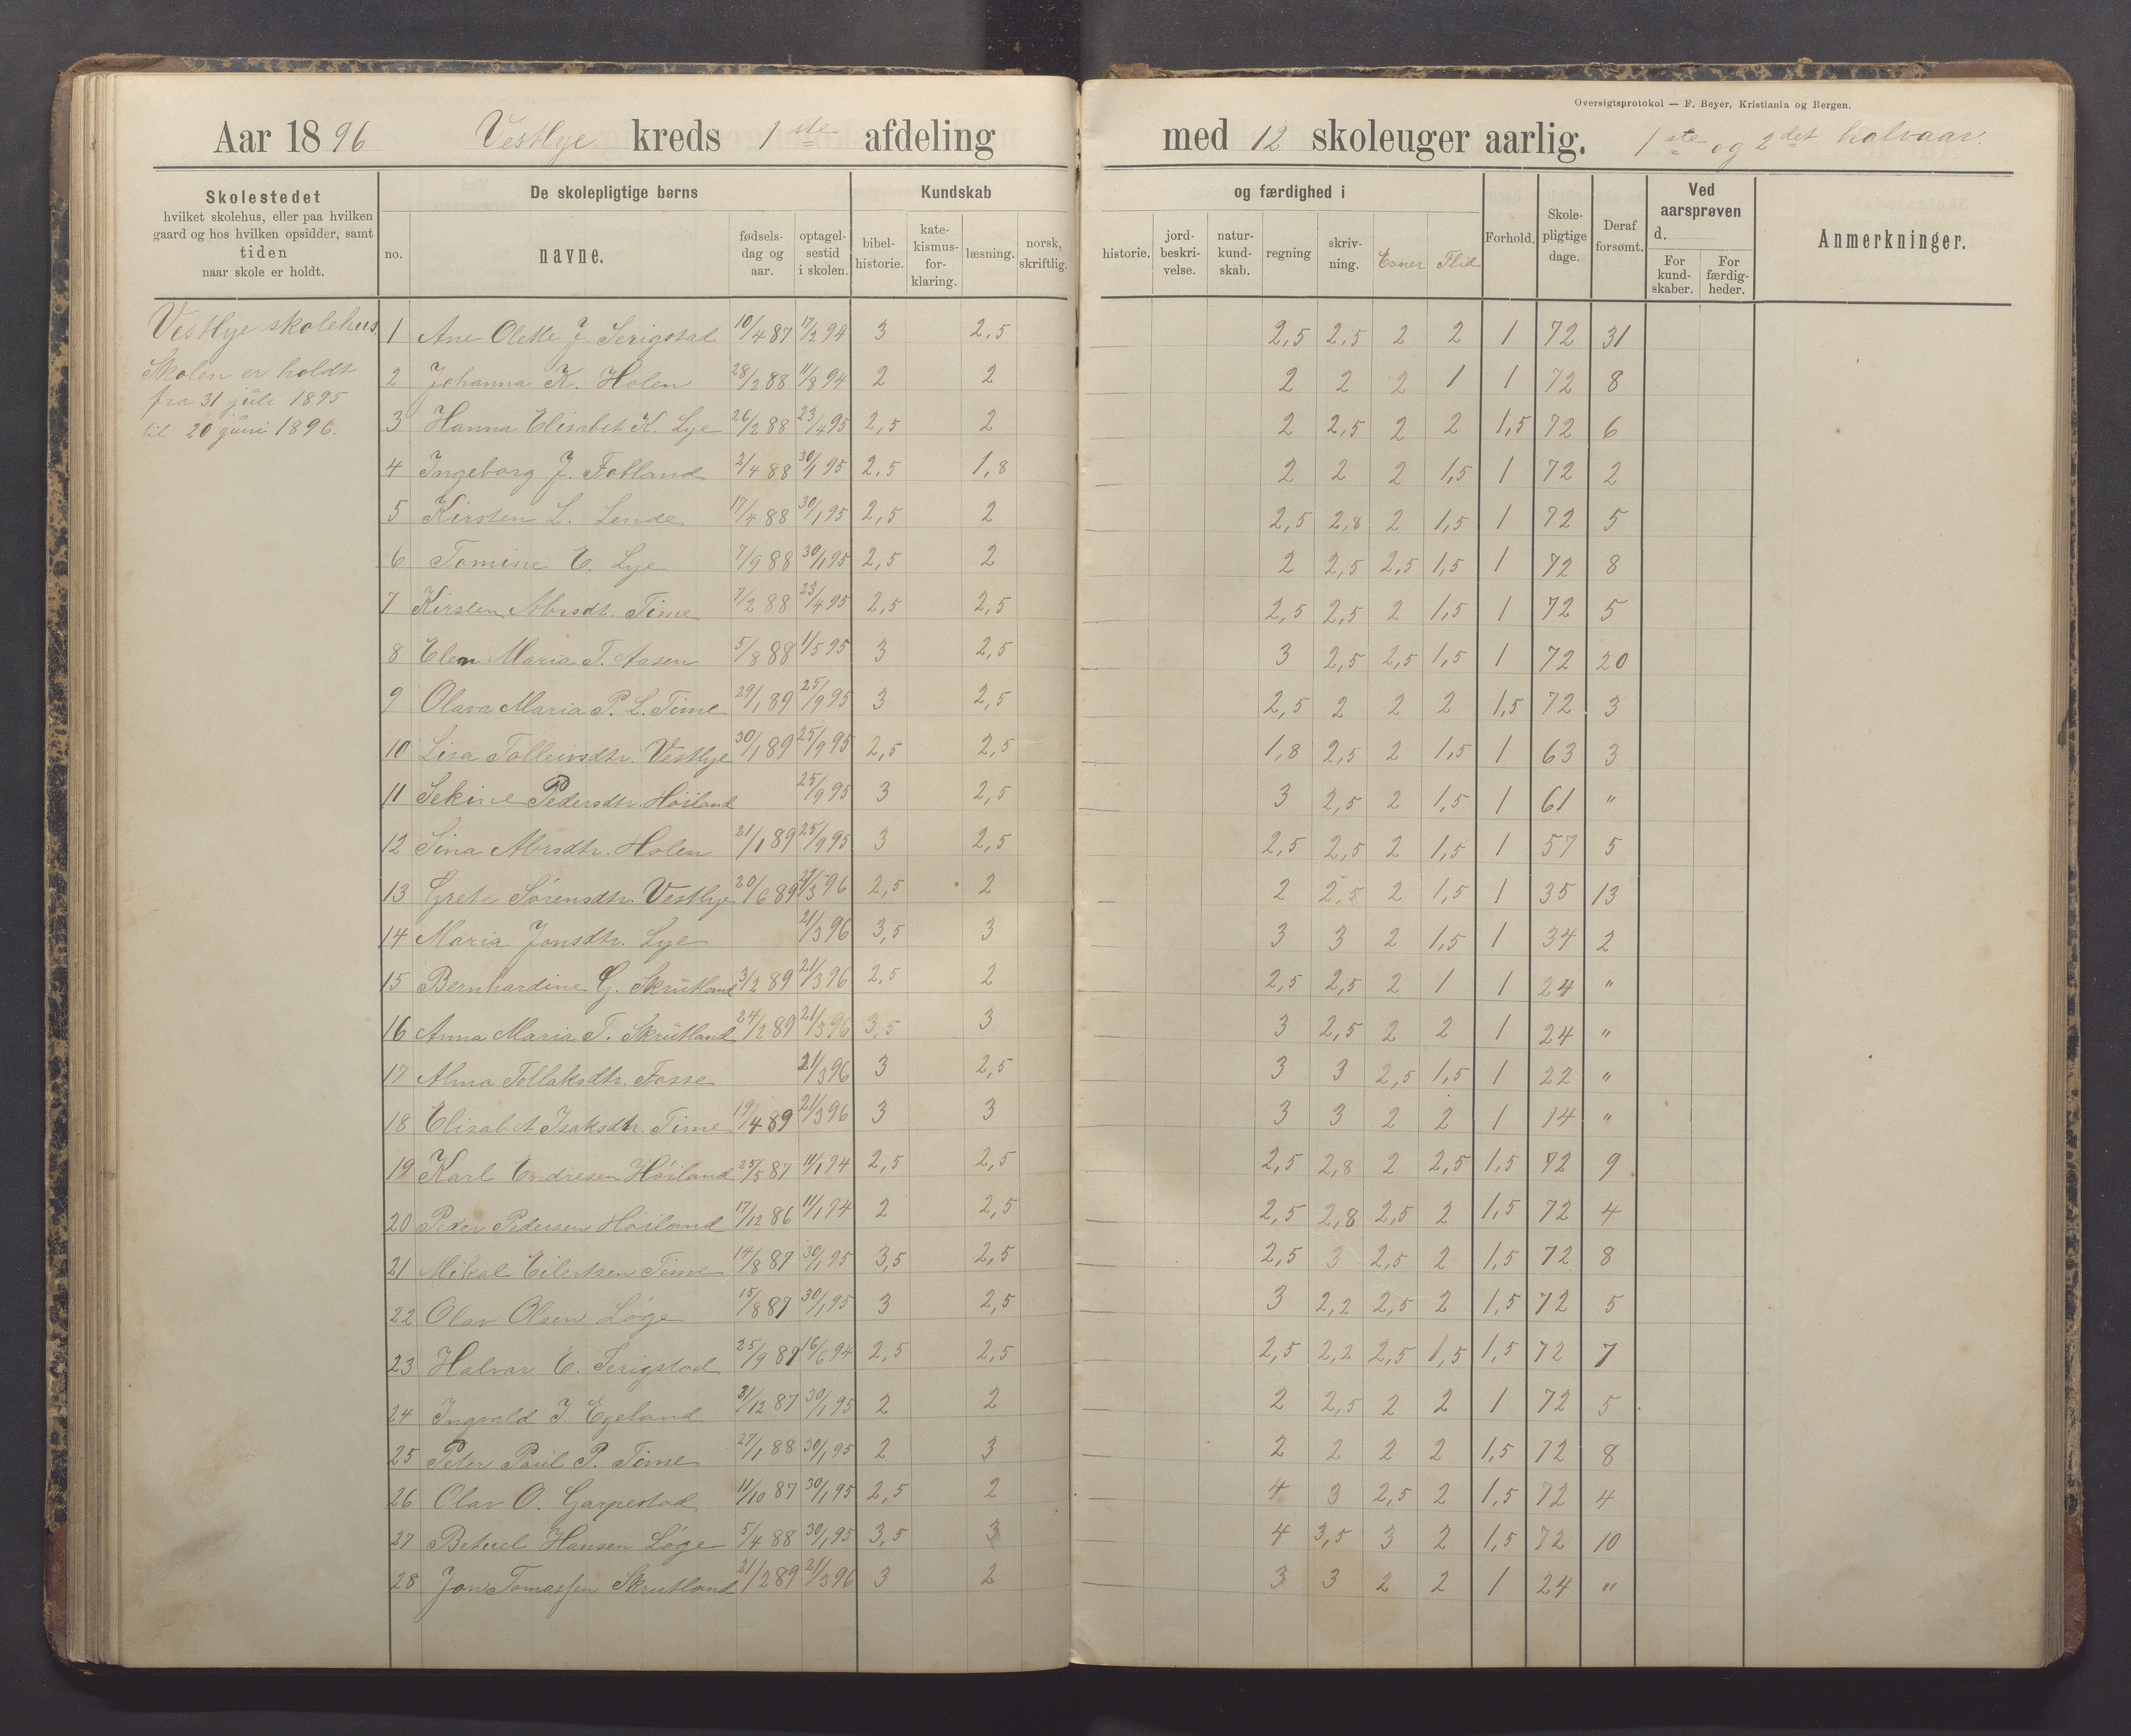 Oversigtsprotokol — F. Beyer, Kristiania og Bergen.
Aar 1896 Vestlye kreds 1ste afdeling med 12 skoleuger aarlig. 1ste og 2det halvaar.
Skolestedet hvilket skolehus, eller paa hvilken gaard og hos hvilken opsidder, samt tiden naar skole er holdt.
De skolepligtige børns
no. navne. fødsels-dag og aar. optagel-sestid i skolen.
Kundskab og færdighed i
bibel-historie. kate-kismus-for-klaring. læsning. norsk, skriftlig. historie. jord-beskri-velse. natur-kund-skab. regning skriv-ning. Evner Flid
Forhold. Skole-pligtige dage. Deraf forsømt.
Ved aarsprøven d. For kund-skaber. For færdig-heder.
Anmerkninger.
Vestlye skolehus.
Skolen er holdt
fra 31 juli 1895
til 20 juni 1896.
1 Ane Olette J. Serigstad 10/4 87 17/2 94 3 2,5 2,5 2,5 2 2 1 72 31
2 Johanna K. Holen 28/2 88 11/8 94 2 2 2 2 2 1 1 72 8
3 Hanna Elisabet K. Lye 26/2 88 23/4 95 2,5 2 2 2,5 2 2 1,5 72 6
4 Ingeborg J. Fotland 2/4 88 30/1 95 2,5 1,8 2 2 2 1,5 1 72 2
5 Kirsten L. Lende 17/4 88 30/1 95 2,5 2 2,5 2,8 2 1,5 1 72 5
6 Tomine E. Lye 7/9 88 30/1 95 2,5 2 2 2,5 2,5 1,5 1 72 8
7 Kirsten Abrsdt. Time 7/2 88 23/4 95 2,5 2,5 2,5 2,5 2 1,5 1 72 5
8 Elen Maria T. Aasen 5/8 88 11/5 95 3 2,5 3 2,5 2,5 1,5 1 72 20
9 Olava Maria P. L. Time 29/1 89 25/9 95 3 2,5 2,5 2 2 2 1,5 72 3
10 Lisa Tolleivsdtr. Vestlye 30/1 89 25/9 95 2,5 2,5 1,8 2,5 2 1,5 1 63 3
11 Sekine Pedersdtr. Höiland 25/9 95 3 2,5 3 2,5 2 1,5 1 61 "
12 Sina Abrsdtr. Holen 21/1 89 25/9 95 3 2,5 2,5 2,5 2 1,5 1 57 5
13 Grete Sørensdtr. Vestlye 20/6 89 21/3 96 2,5 2 2 2,5 2 1,5 1 35 13
14 Maria Jonsdtr. Lye 21/3 96 3,5 3 3 3 2 1,5 1 34 2
15 Bernhardine G. Skrutland 3/2 89 21/3 96 2,5 2 2,5 2,5 2 1 1 24 "
16 Anna Maria T. Skrutland 24/2 89 21/3 96 3,5 3 3 2,5 2 2 1 24 "
17 Alma Tollaksdtr. Fosse 21/3 96 3 2,5 3 3 2,5 1,5 1 22 "
18 Elisabet Isaksdtr. Time 19/4 89 21/3 96 3 3 3 3 2 2 1 14 "
19 Karl Endresen Höiland 25/5 87 11/1 94 2,5 2,5 2,5 2,8 2 2,5 1,5 72 9
20 Peder Pedersen Höiland 17/12 86 11/1 94 2 2,5 2,5 2,8 2,5 2 1,5 72 4
21 Mikal Eilertsen Time 14/8 87 30/1 95 3,5 2,5 2,5 3 2,5 2 1,5 72 8
22 Olav Olsen Løge 15/8 87 30/1 95 3 2,5 3 2,2 2,5 2 1,5 72 5
23 Halvar E. Serigstad 25/9 87 16/6 94 2,5 2,5 2,5 2,2 2,5 1,5 1,5 72 7
24 Ingvald I Egeland 31/12 87 30/1 95 2 2 2 2,5 2 2 1 72 5
25 Peter Paul P. Time 27/1 88 30/1 95 2 3 2 2 2 2 1,5 72 8
26 Olav O. Garpestad 11/10 87 30/1 95 2,5 2 4 3 2,5 2 1,5 72 4
27 Betuel Hansen Løge 5/4 88 30/1 95 3,5 3 4 3,5 3 2 1,5 72 10
28 Jon Tomassen Skrutland 21/2 89 21/3 96 3 2 3 3 2 2 1 24 "